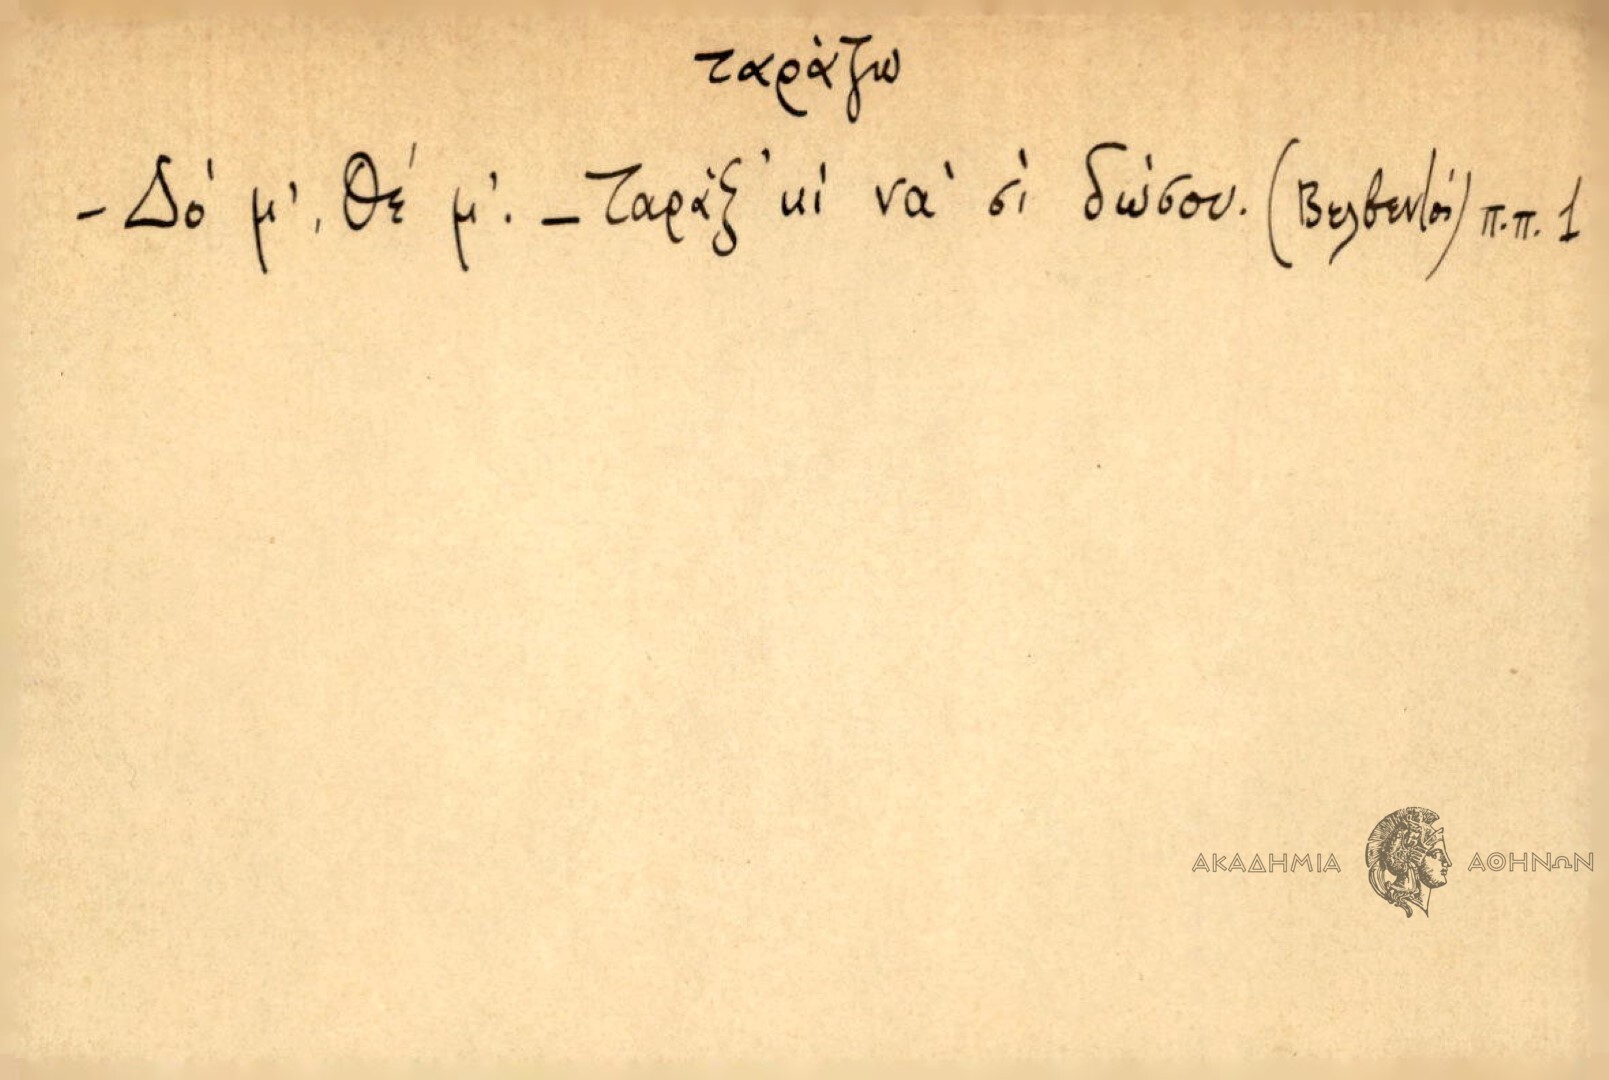 ταράζω
- Δό μ', Θέ μ'. - Ταράξ' κί νά σί δώσου. (Βελβεντός) π.π. 1
ΑΚΑΔΗΜΙΑ ΑΘΗΝΩΝ